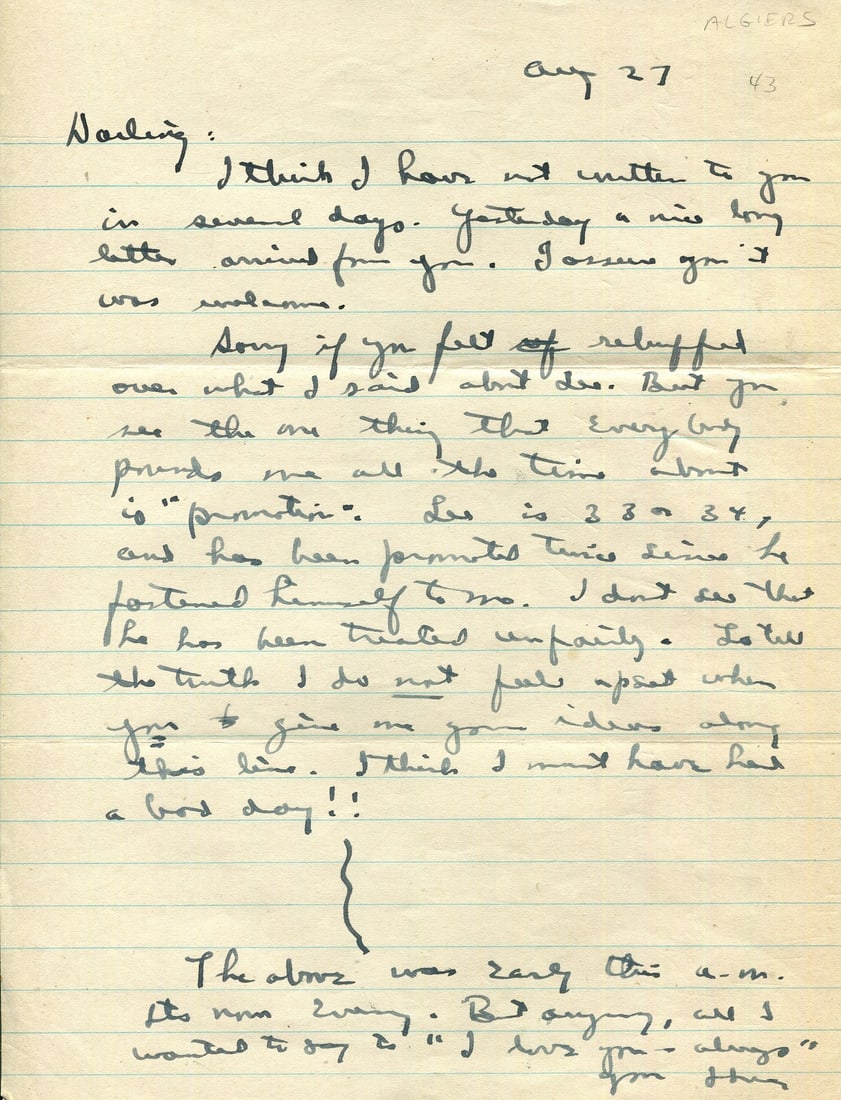 ALGIERS
Aug 27
43
Darling:
I think I have not written to you
in several days. Yesterday a nice long
letter arrived from you. I assure you it
was welcome.
Sorry if you felt rebuffed
over what I said about Lee. But you
see the one thing that everybody
pounds me all the time about
is "promotion". Lee is 33 or 34,
and has been promoted twice since he
fastened himself to me. I don't see that
he has been treated unfairly. To tell
the truth I do not feel upset when
you give me your ideas along
this line. I think I must have had
a bad day!!
The above was early this a-m.
Its now Evening. But anyway, all I
wanted to say is "I love you - always"
Your